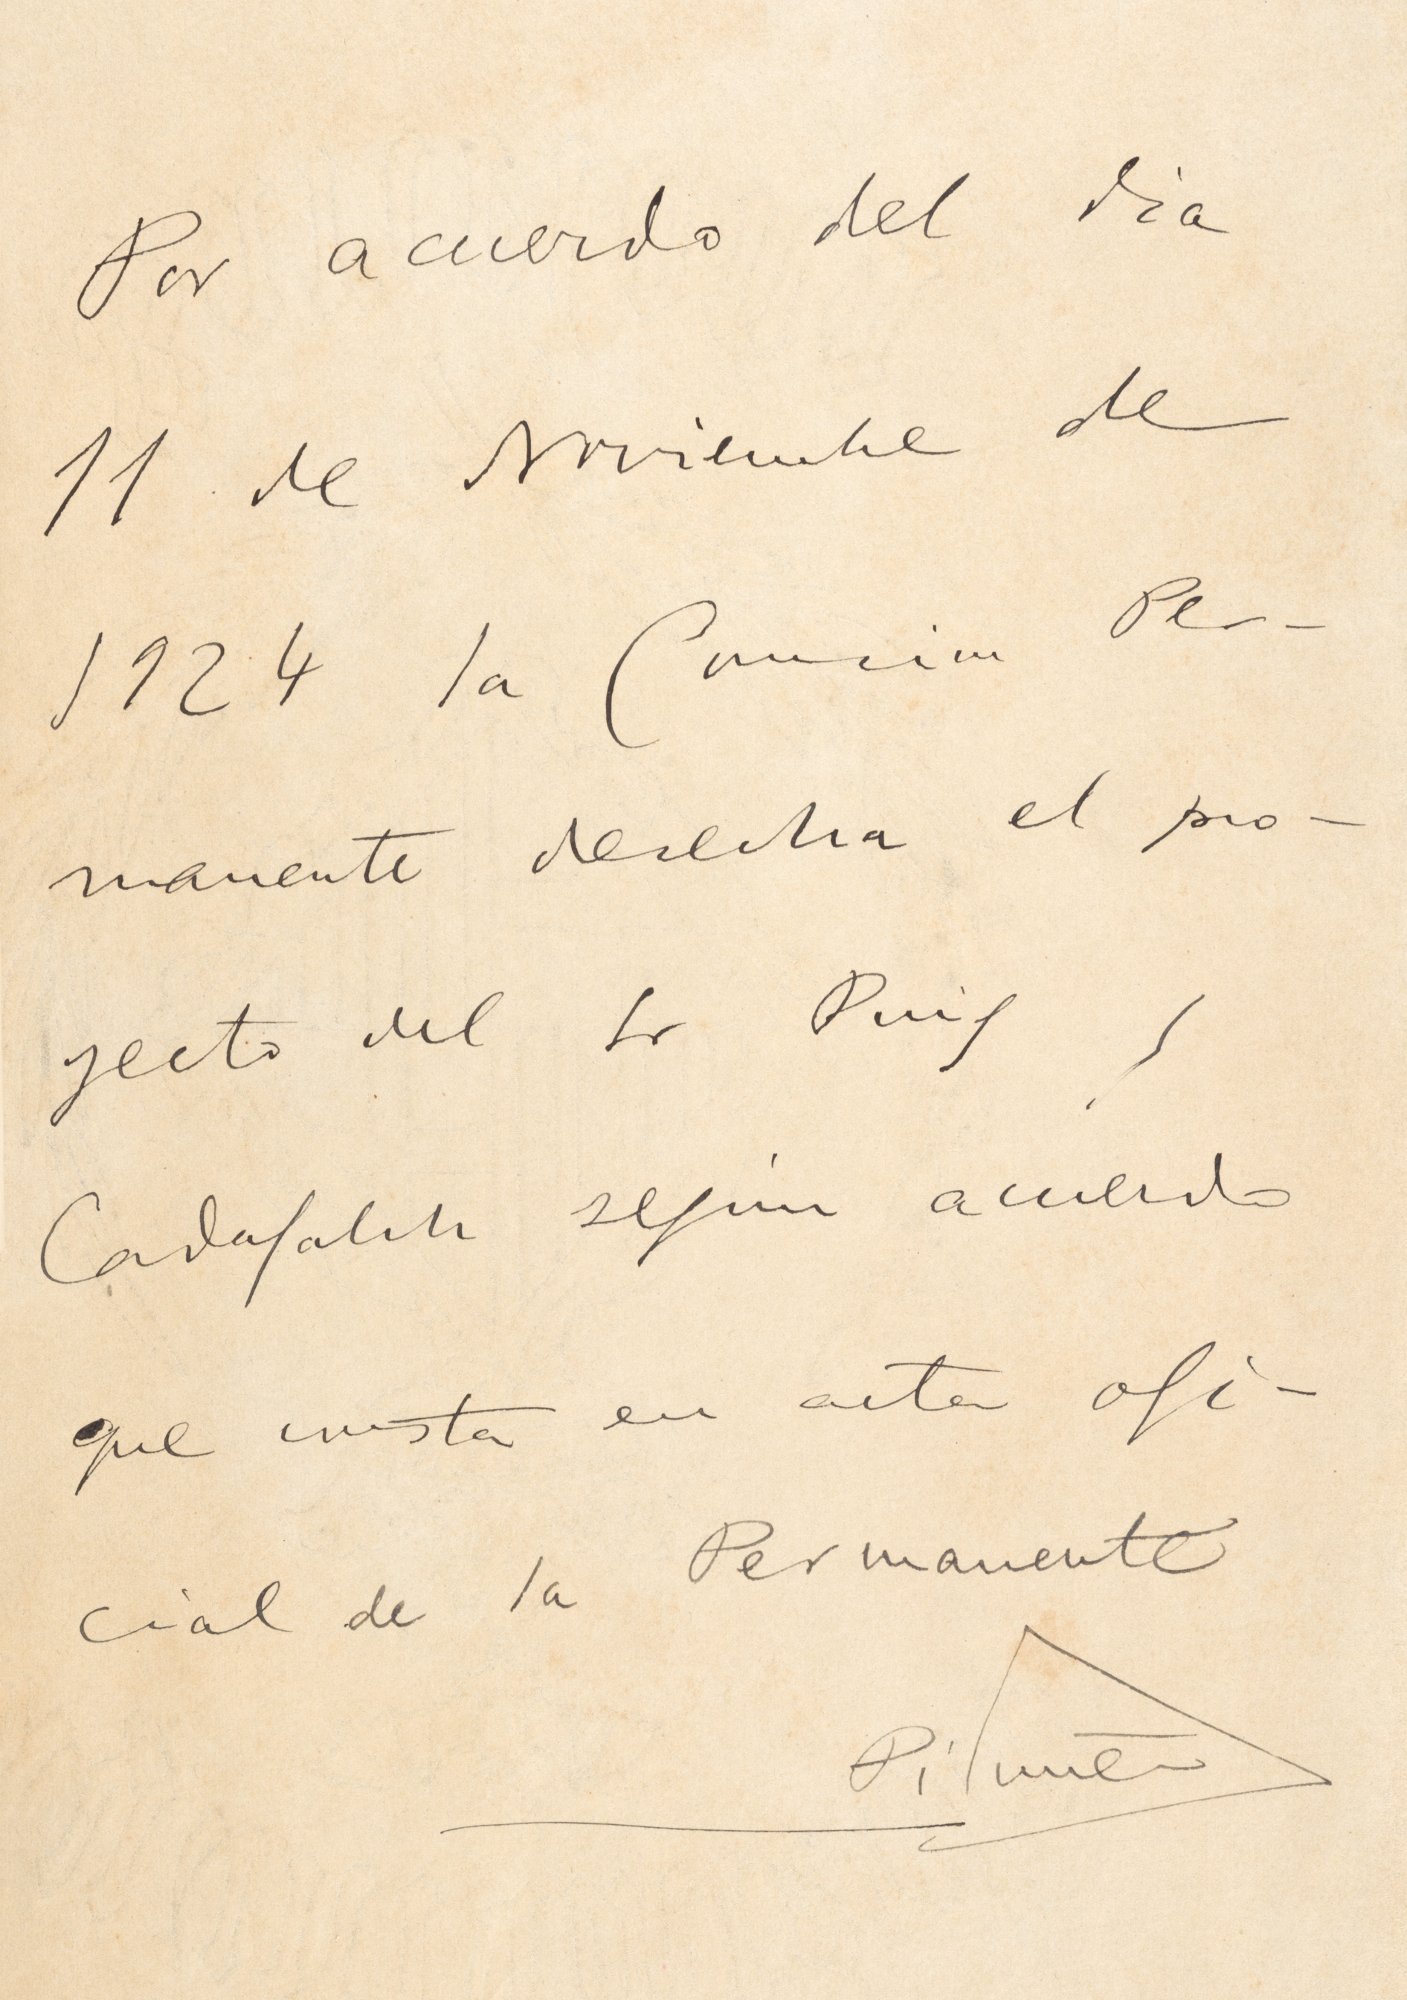 Por acuerdo del dia
11 de Noviembre de
1924 la Comision Per-
manente desecha el pro-
yecto del Sr Puig y
Cadafalch según acuerdo
que consta en acta ofi-
cial de la Permanente